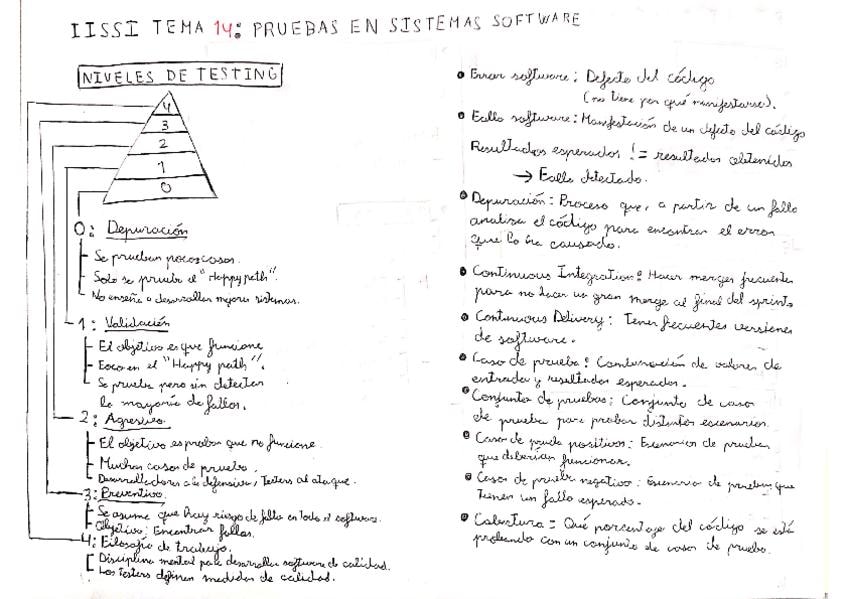 IISSI TEMA 14: PRUEBAS EN SISTEMAS SOFTWARE
NIVELES DE TESTING
4
3
2
1
0
0: Depuración
Se prueban pocos casos.
Solo se prueba el "Happy path".
No enseña a desarrollar mejores sistemas.
1: Validación
El objetivo es que funcione
Foco en el "Happy path".
Se prueba pero sin detectar
la mayoría de fallos.
2: Agresivo
El objetivo es probar que no funcione.
Muchos casos de prueba.
Desarrolladores a la defensiva, Testers al ataque.
3: Preventivo
Se asume que hay riesgo de fallo en todo el software.
Objetivo: Encontrar fallos.
4: Filosofía de trabajo.
Disciplina mental para desarrollar software de calidad.
Los testers definen medidas de calidad.
Error software: Defecto del código
(no tiene por qué manifestarse).
Fallo software: Manifestación de un defecto del código
Resultados esperados != resultados obtenidos
→ Fallo detectado.
Depuración: Proceso que, a partir de un fallo
analiza el código para encontrar el error
que lo ha causado.
Continuous Integration: Hacer merges frecuentes
para no hacer un gran merge al final del sprint.
Continuous Delivery: Tener frecuentes versiones
de software.
Caso de prueba: Combinación de valores de
entrada y resultados esperados.
Conjunto de pruebas: Conjunto de casos
de prueba para probar distintos escenarios.
Casos de prueba positivos: Escenarios de prueba
que deberían funcionar.
Casos de prueba negativo: Escenario de pruebas que
tienen un fallo esperado.
Cobertura = Qué porcentaje del código se está
probando con un conjunto de casos de prueba.